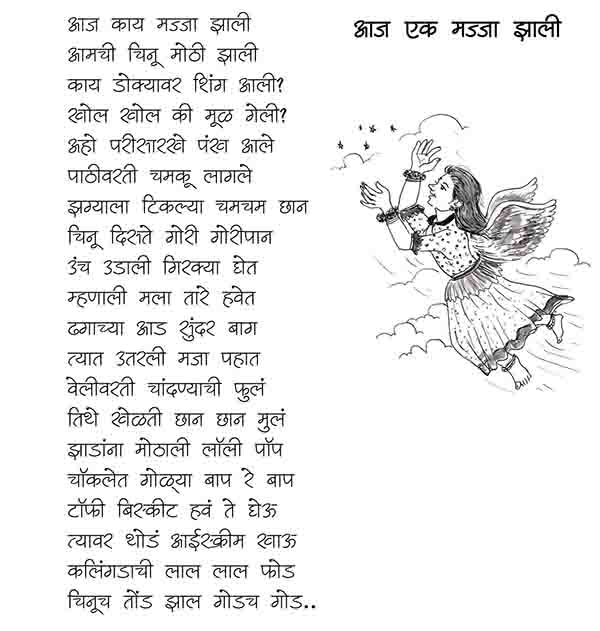 आज एक मज्जा झाली
आज काय मज्जा झाली
आमची चिनू मोठी झाली
काय डोक्यावर शिंग आली?
खोल खोल की मूळ गेली?
अहो परीसारखे पंख आले
पाठीवरती चमकू लागले
झग्याला टिकल्या चमचम छान
चिनू दिसते गोरी गोरीपान
उंच उडाली गिरक्या घेत
म्हणाली मला तारे हवेत
ढगाच्या आड सुंदर बाग
त्यात उतरली मजा पहात
वेलीवरती चांदण्याची फुलं
तिथे खेळती छान छान मुलं
झाडांना मोठाली लॉली पॉप
चॉकलेत गोळ्या बाप रे बाप
टॉफी बिस्कीट हवं ते घेऊ
त्यावर थोडं आईस्क्रीम खाऊ
कलिंगडाची लाल लाल फोड
चिनूच तोंड झाल गोडच गोड..